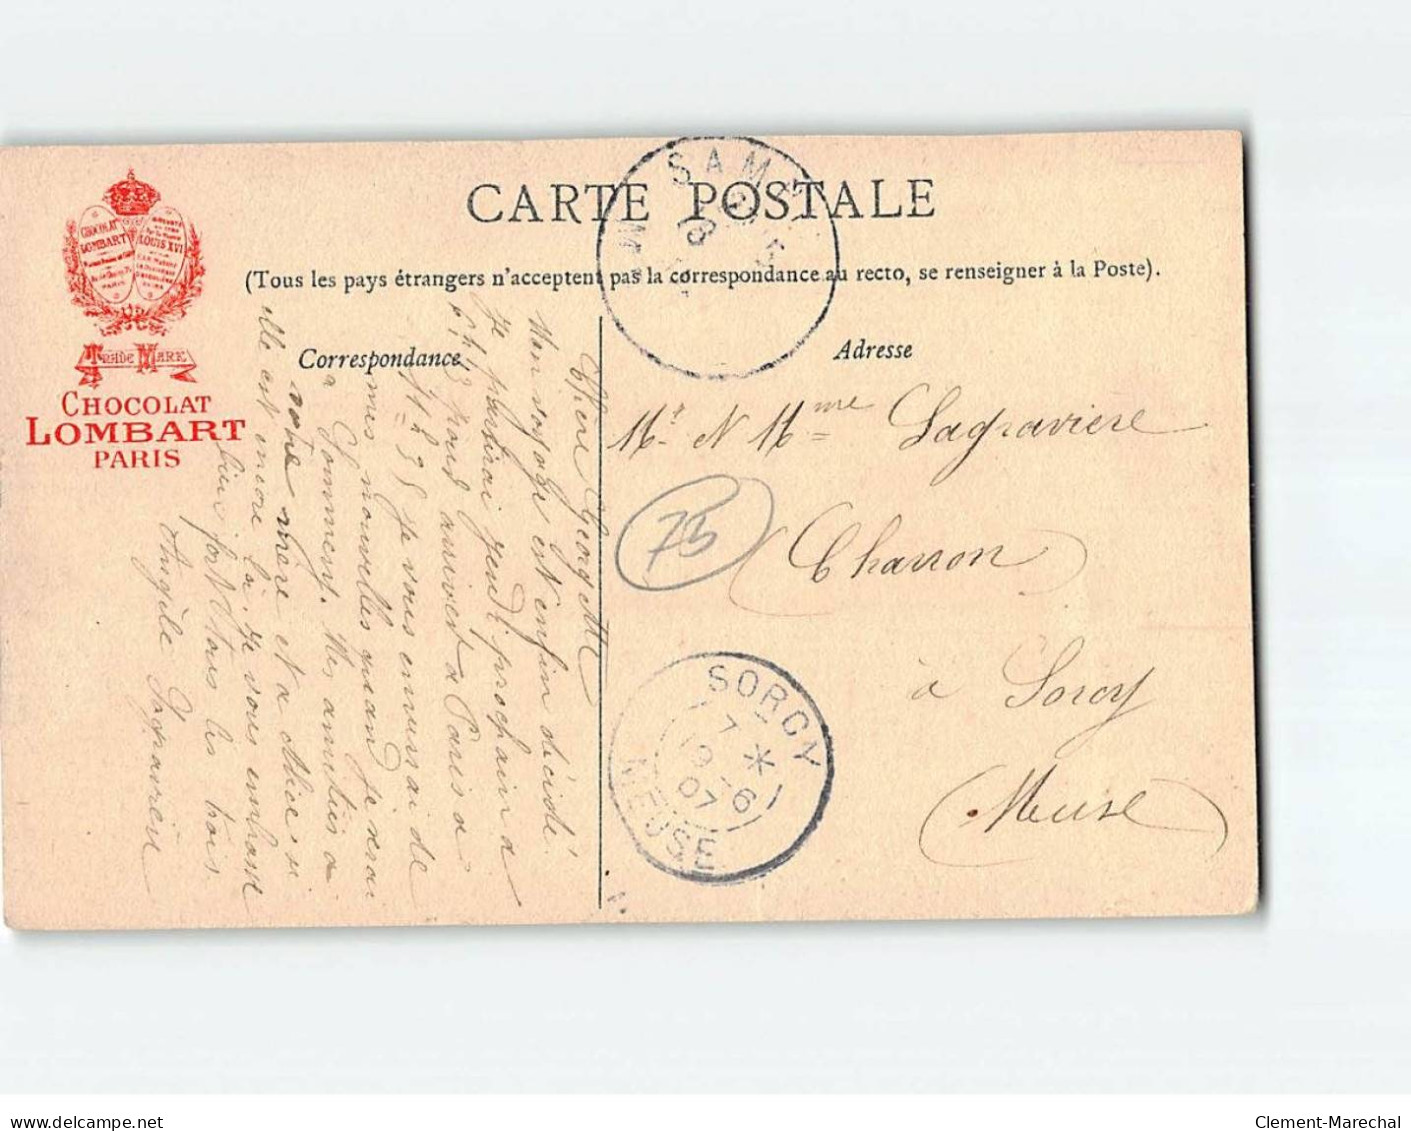 CARTE POSTALE
(Tous les pays étrangers n'acceptent pas la correspondance au recto, se renseigner à la Poste).
Correspondance
Adresse
CHOCOLAT
LOMBART
PARIS
LOUIS XVI
TRADE MARK
CHOCOLAT
LOMBART
PARIS
Chère Georgette
Mon voyage est enfin décidé.
Je partirai jeudi prochain a
6h43 pour arriver a Paris a
11h=35 je vous enverrai de
mes nouvelles quand je serai
a Gommery. Mes amitiés a
votre mère et a Alice si
elle est encore là. Je vous embrasse
bien fort tous les trois
Angèle Lagravière
Mr. N Mme Lagravière
Charron
à Sorcy
(Meuse)
75
SAM
M
18
5
SORCY
7 *
19 -6
07
MEUSE
www.delcampe.net
Clement-Marechal